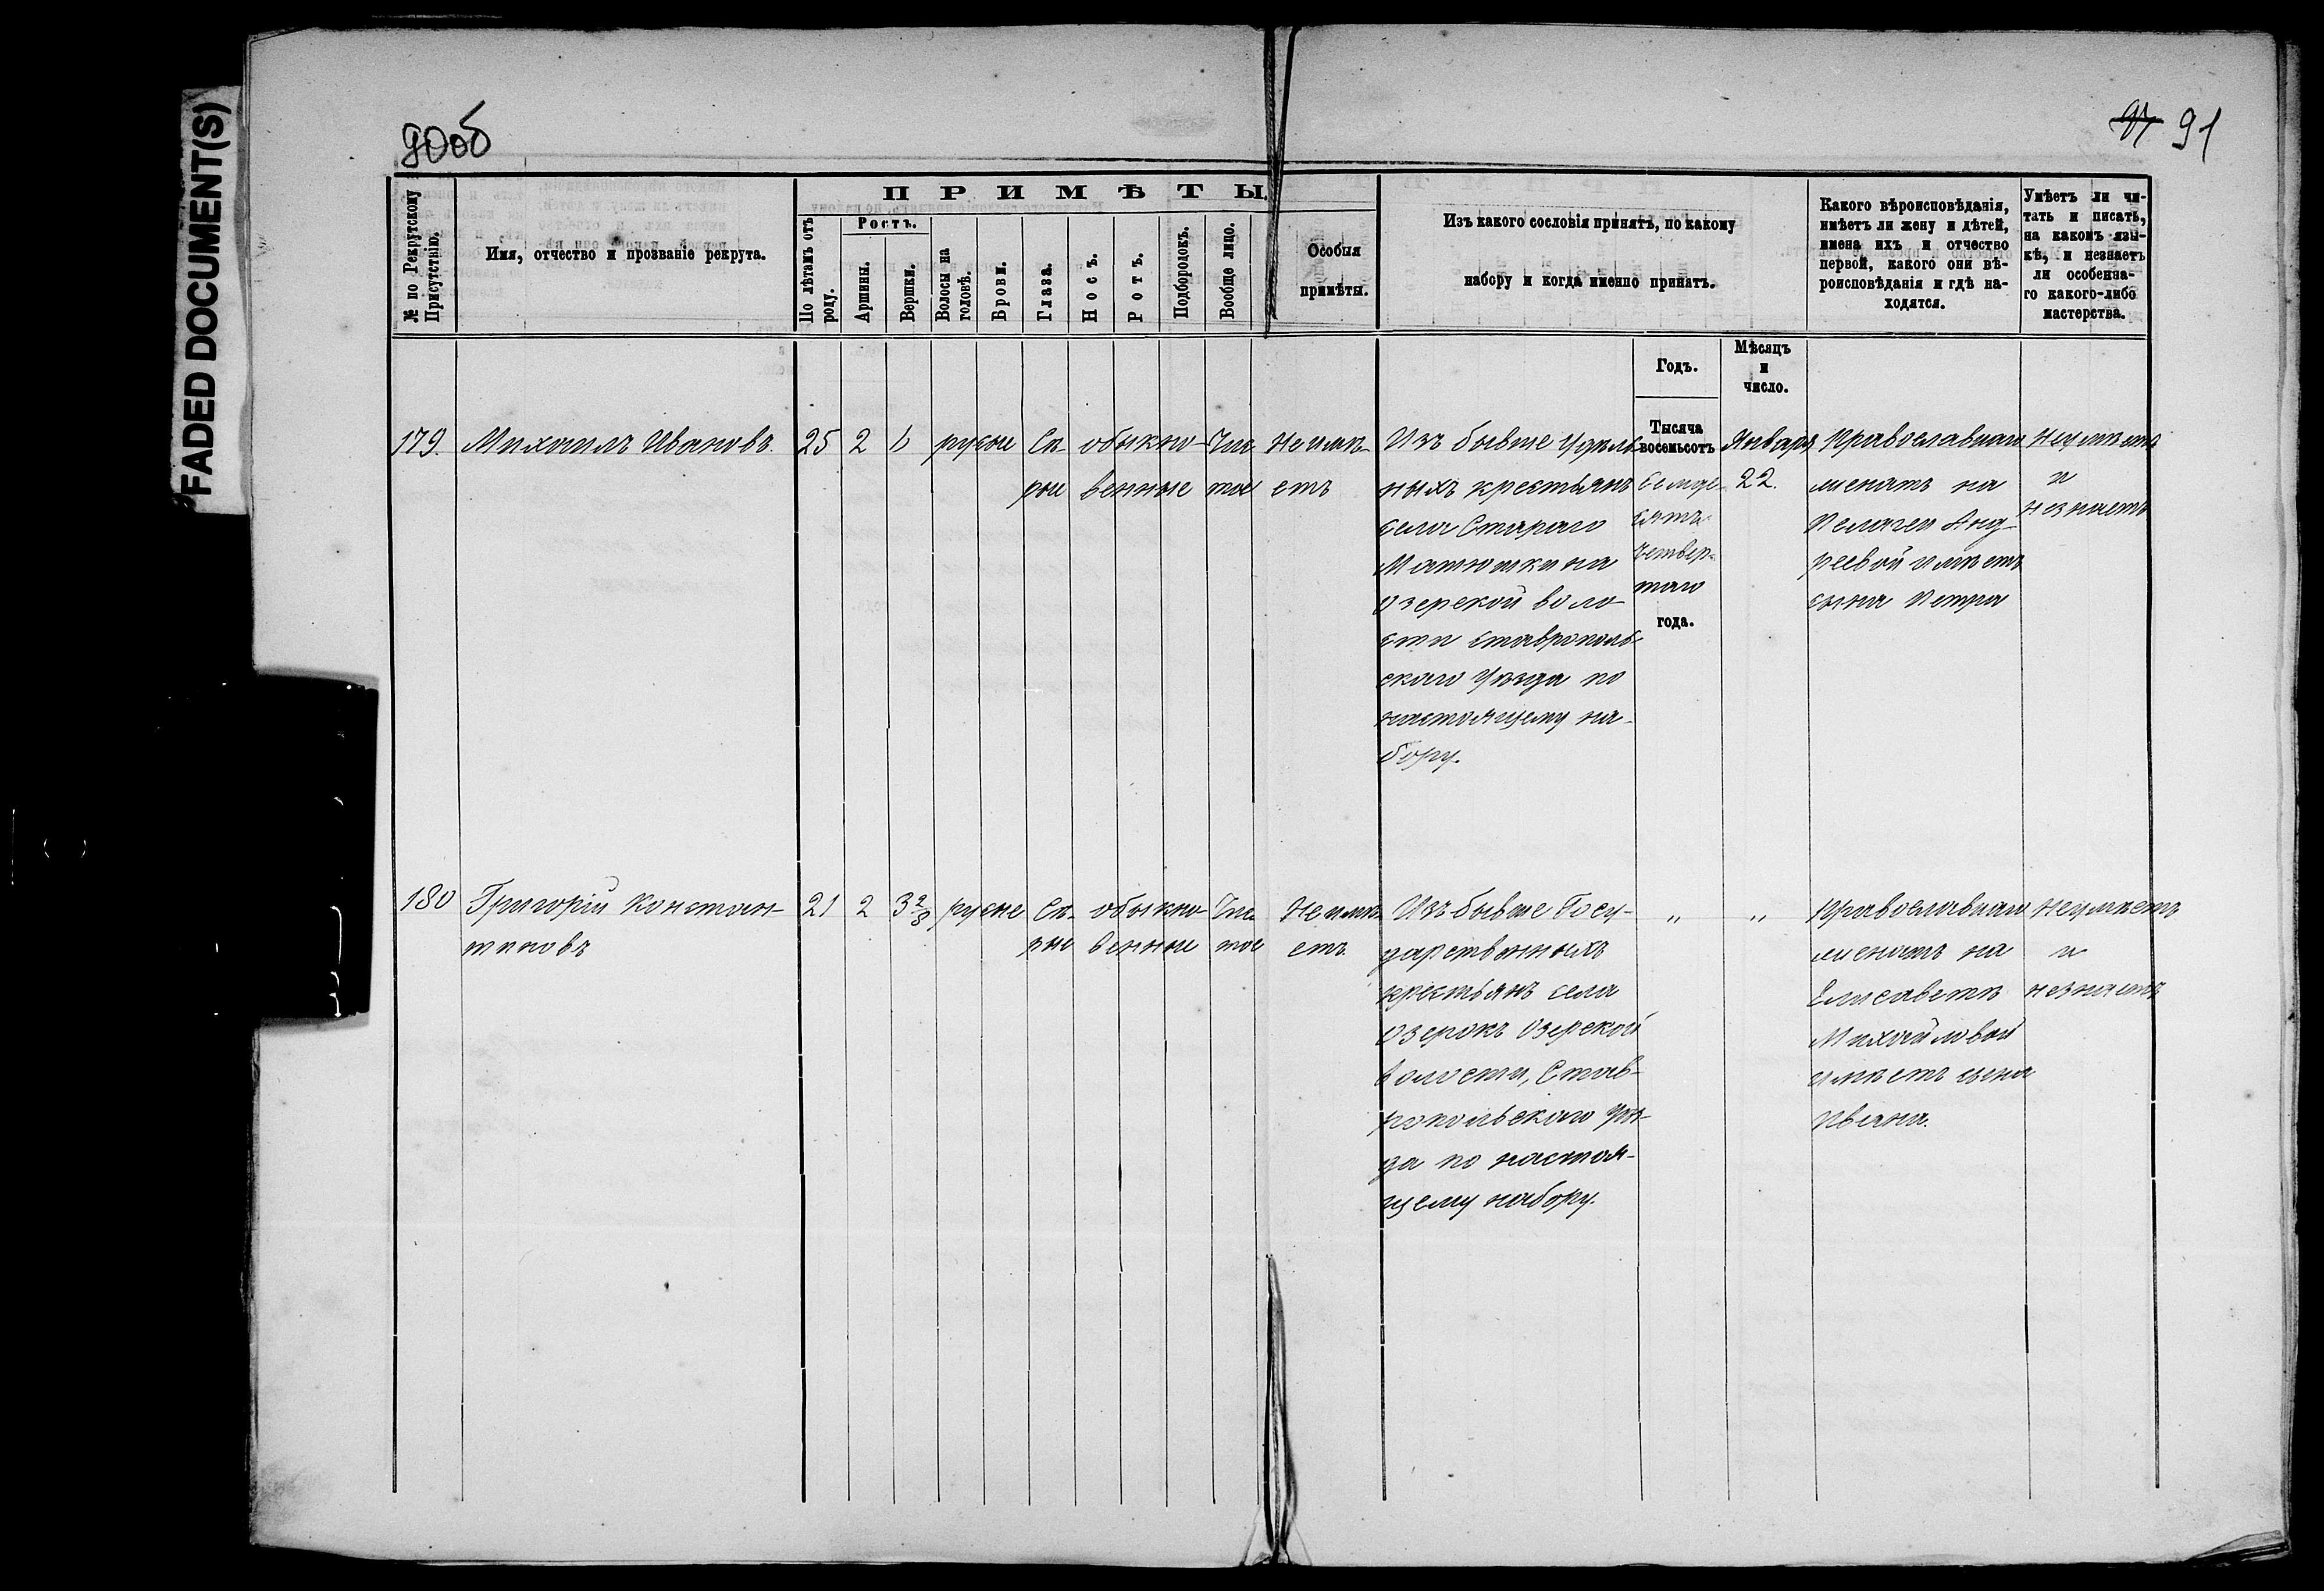 FADED DOCUMENT(S)
90об
91
ПРИМѢТЫ.
№ по Рекрутскому Присутствію.
Имя, отчество и прозваніе рекрута.
По лѣтамъ отъ роду.
Ростъ.
Аршины.
Вершки.
Волосы на головѣ.
Брови.
Глаза.
Носъ.
Ротъ.
Подбородокъ.
Вообще лицо.
Особыя
примѣты.
Изъ какого сословія принятъ, по какому
набору и когда именно принятъ.
Какого вѣроисповѣданія,
имѣетъ ли жену и дѣтей,
имена ихъ и отчество
первой, какого они вѣ-
роисповѣданія и гдѣ на-
ходятся.
Умѣетъ ли чи-
тать и писать,
на какомъ язы-
кѣ, и незнаетъ
ли особенна-
го какого-либо
мастерства.
Годъ.
Мѣсяцъ
и
число.
179. Михаилъ Ивановъ. 25 2 русые Сѣ- обыкно- Чис- Неимѣ-
рые венные тое етъ
Изъ бывше Удѣль-
ныхъ крестьянъ
села Стараго
Матюшкина
Озерской воло-
сти Ставрополь-
скаго Уѣзда по
настоящему на-
бору.
Тысяча
восемьсотъ
Семде-
сятъ
четвер-
таго
года.
Января
22.
Православнаго
женатъ на
Пелагеи Анд-
реевой имѣетъ
сына Петра
Неумѣетъ
и
незнаетъ
180 Григорій Констан- 21 2 3 2/8 русые Сѣ- обыкно- Чис- Неимѣ-
тиновъ рые венные тое етъ.
Изъ бывше Госу-
дарственныхъ
крестьянъ села
Озерокъ Озерской
волости, Став-
ропольскаго Уѣз-
да по настоя-
щему набору.
" "
Православнаго
женатъ на
Елисаветѣ
Михайловой
имѣетъ сына
Ивана.
Неумѣетъ
и
незнаетъ